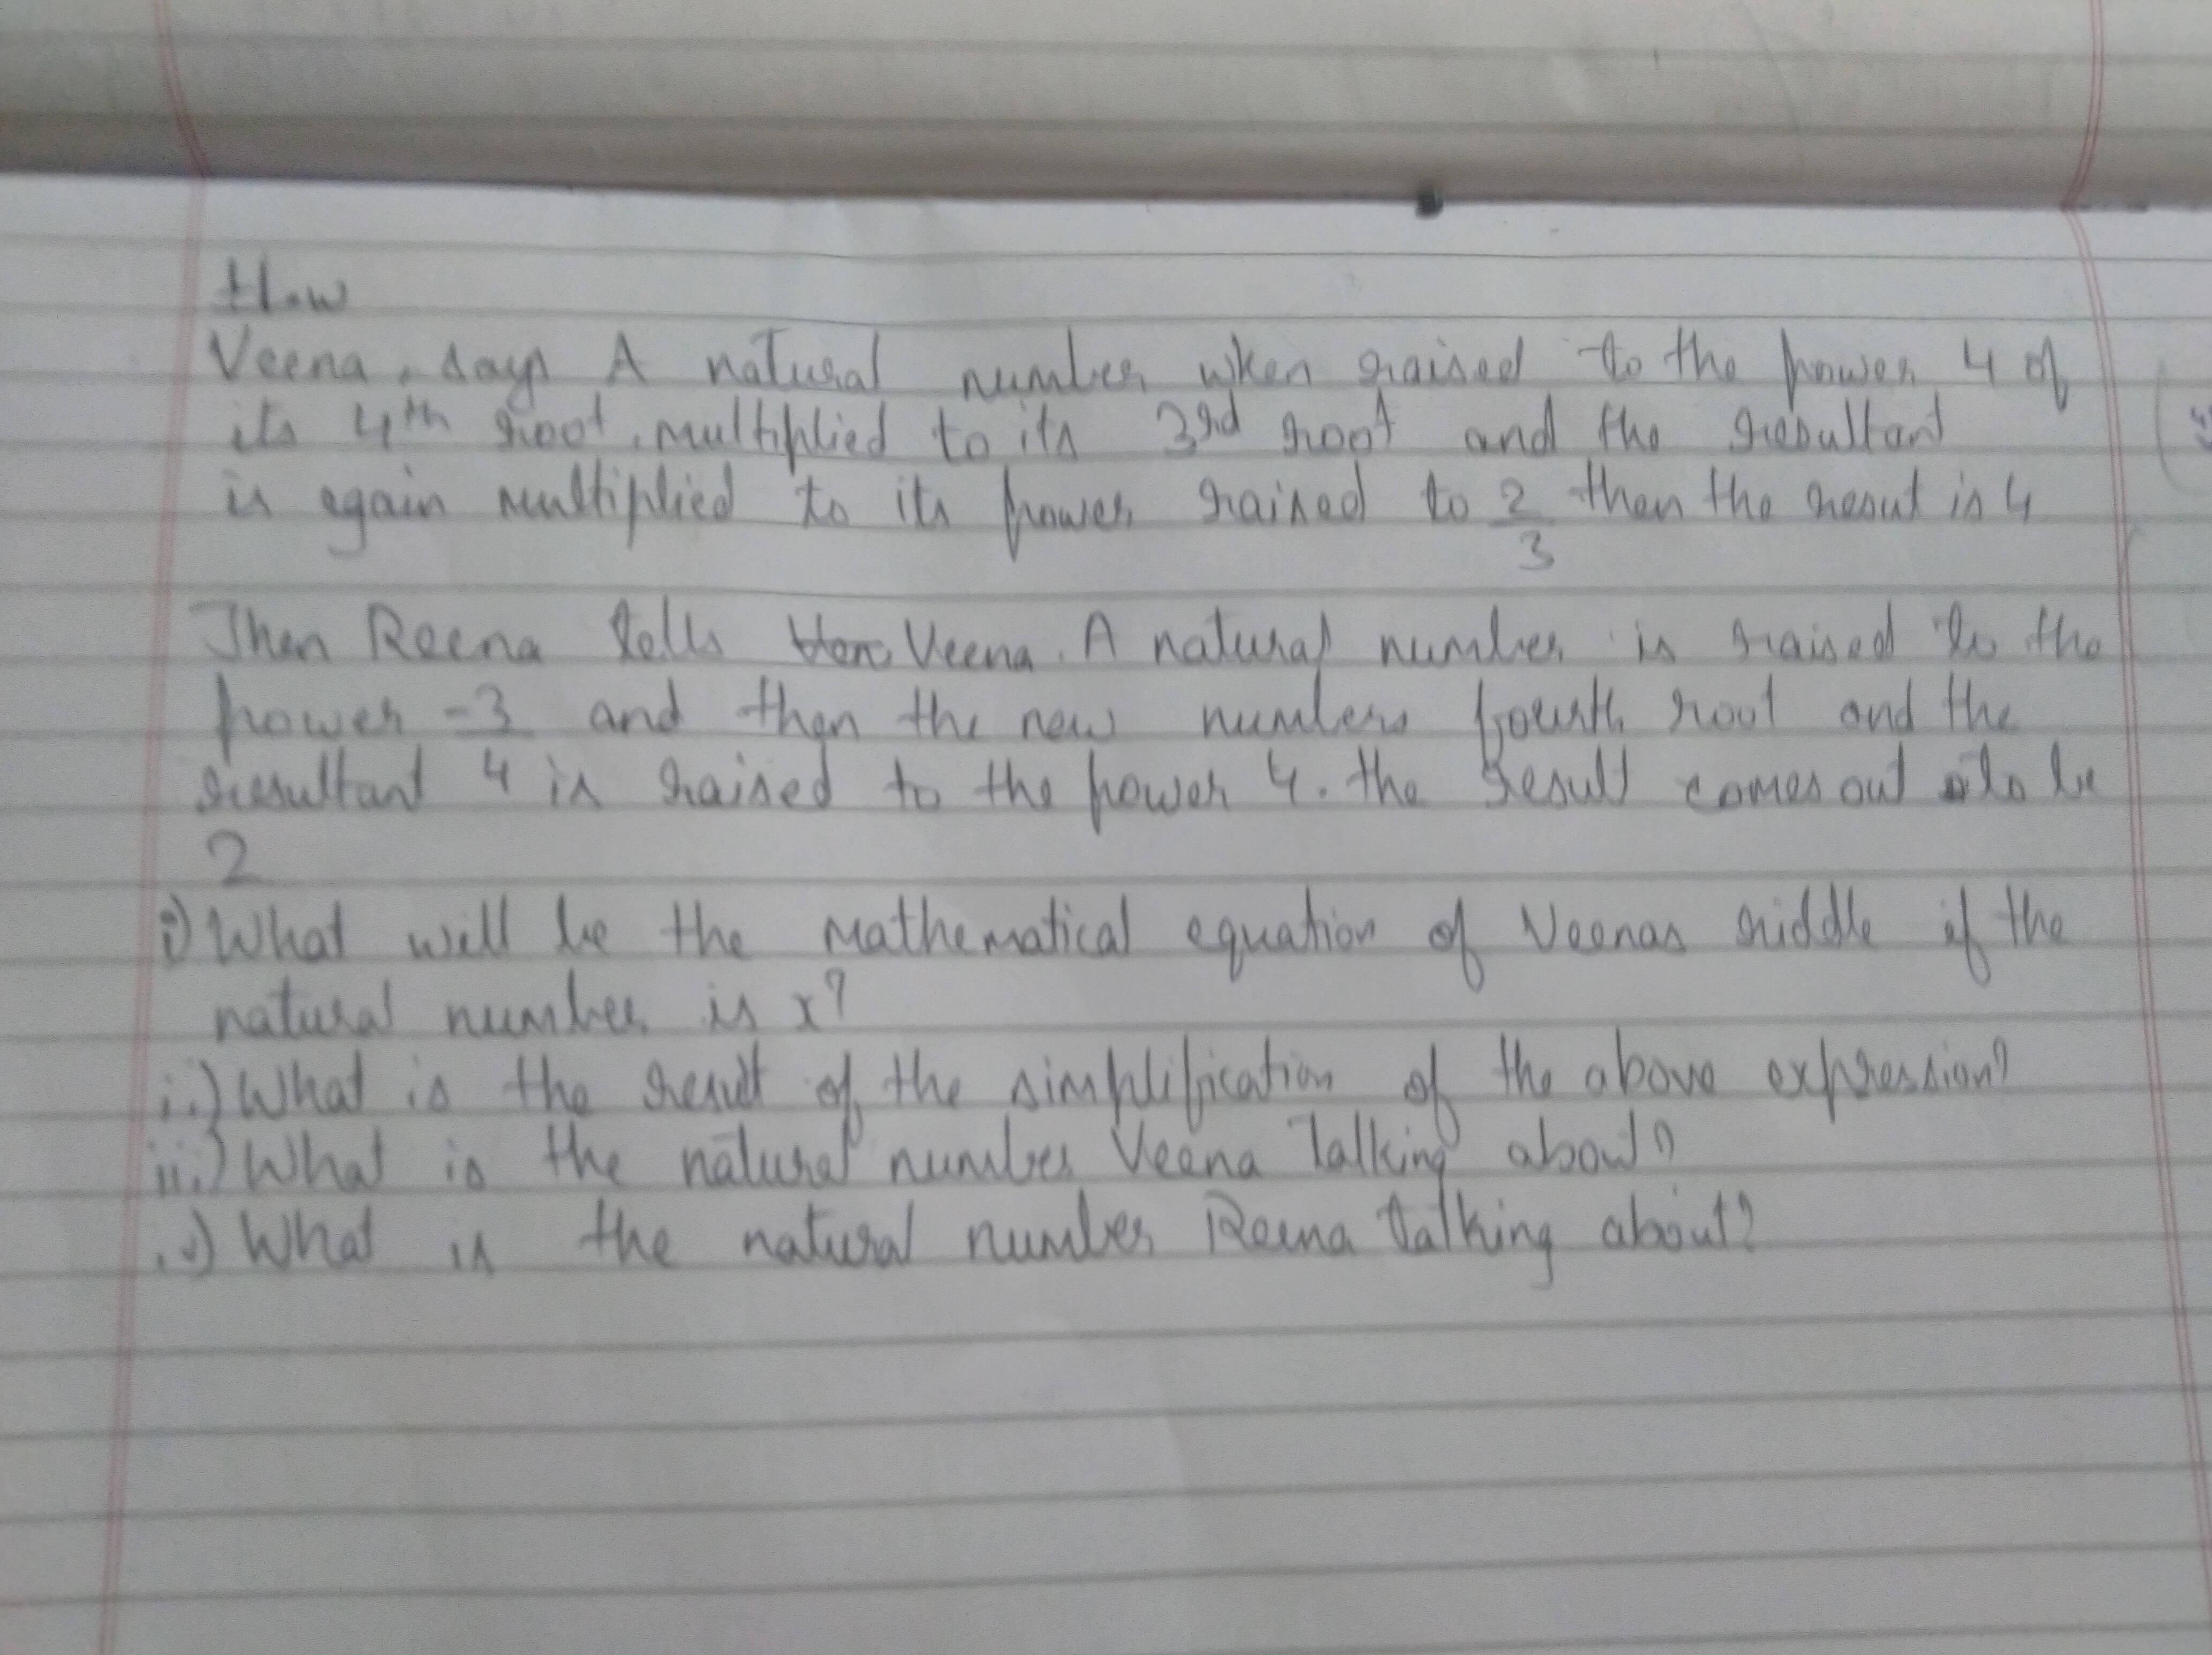 H.w
Veena, says A natural number when raised to the power 4 of
its 4th root, multiplied to its 3rd root and the resultant
is again multiplied to its power raised to 2/3 then the resut is 4
Then Reena tells Veena. A natural number is raised to the
power -3 and then the new numbers fourth root and the
resultant 4 is raised to the power 4. the result comes out to be
2
i) What will be the mathematical equation of Veenas riddle if the
natural number is x?
ii) What is the resut of the simplification of the above expression?
iii) What is the natural number Veena Talking about?
iv) What is the natural number Reena talking about?